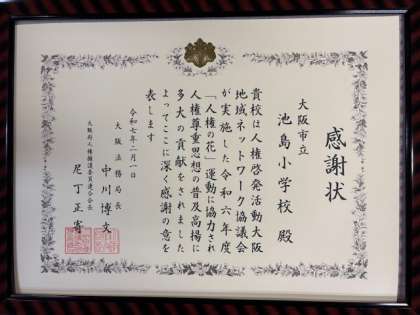 感謝状
大阪市立
池島小学校 殿
貴校は人権啓発活動大阪
地域ネットワーク協議会
が実施した令和六年度
「人権の花」運動に協力され
人権尊重思想の普及高揚に
多大の貢献をされました
よってここに深く感謝の意を
表します
令和七年二月一日
大阪法務局長
中川博文
大阪府人権擁護委員連合会会長